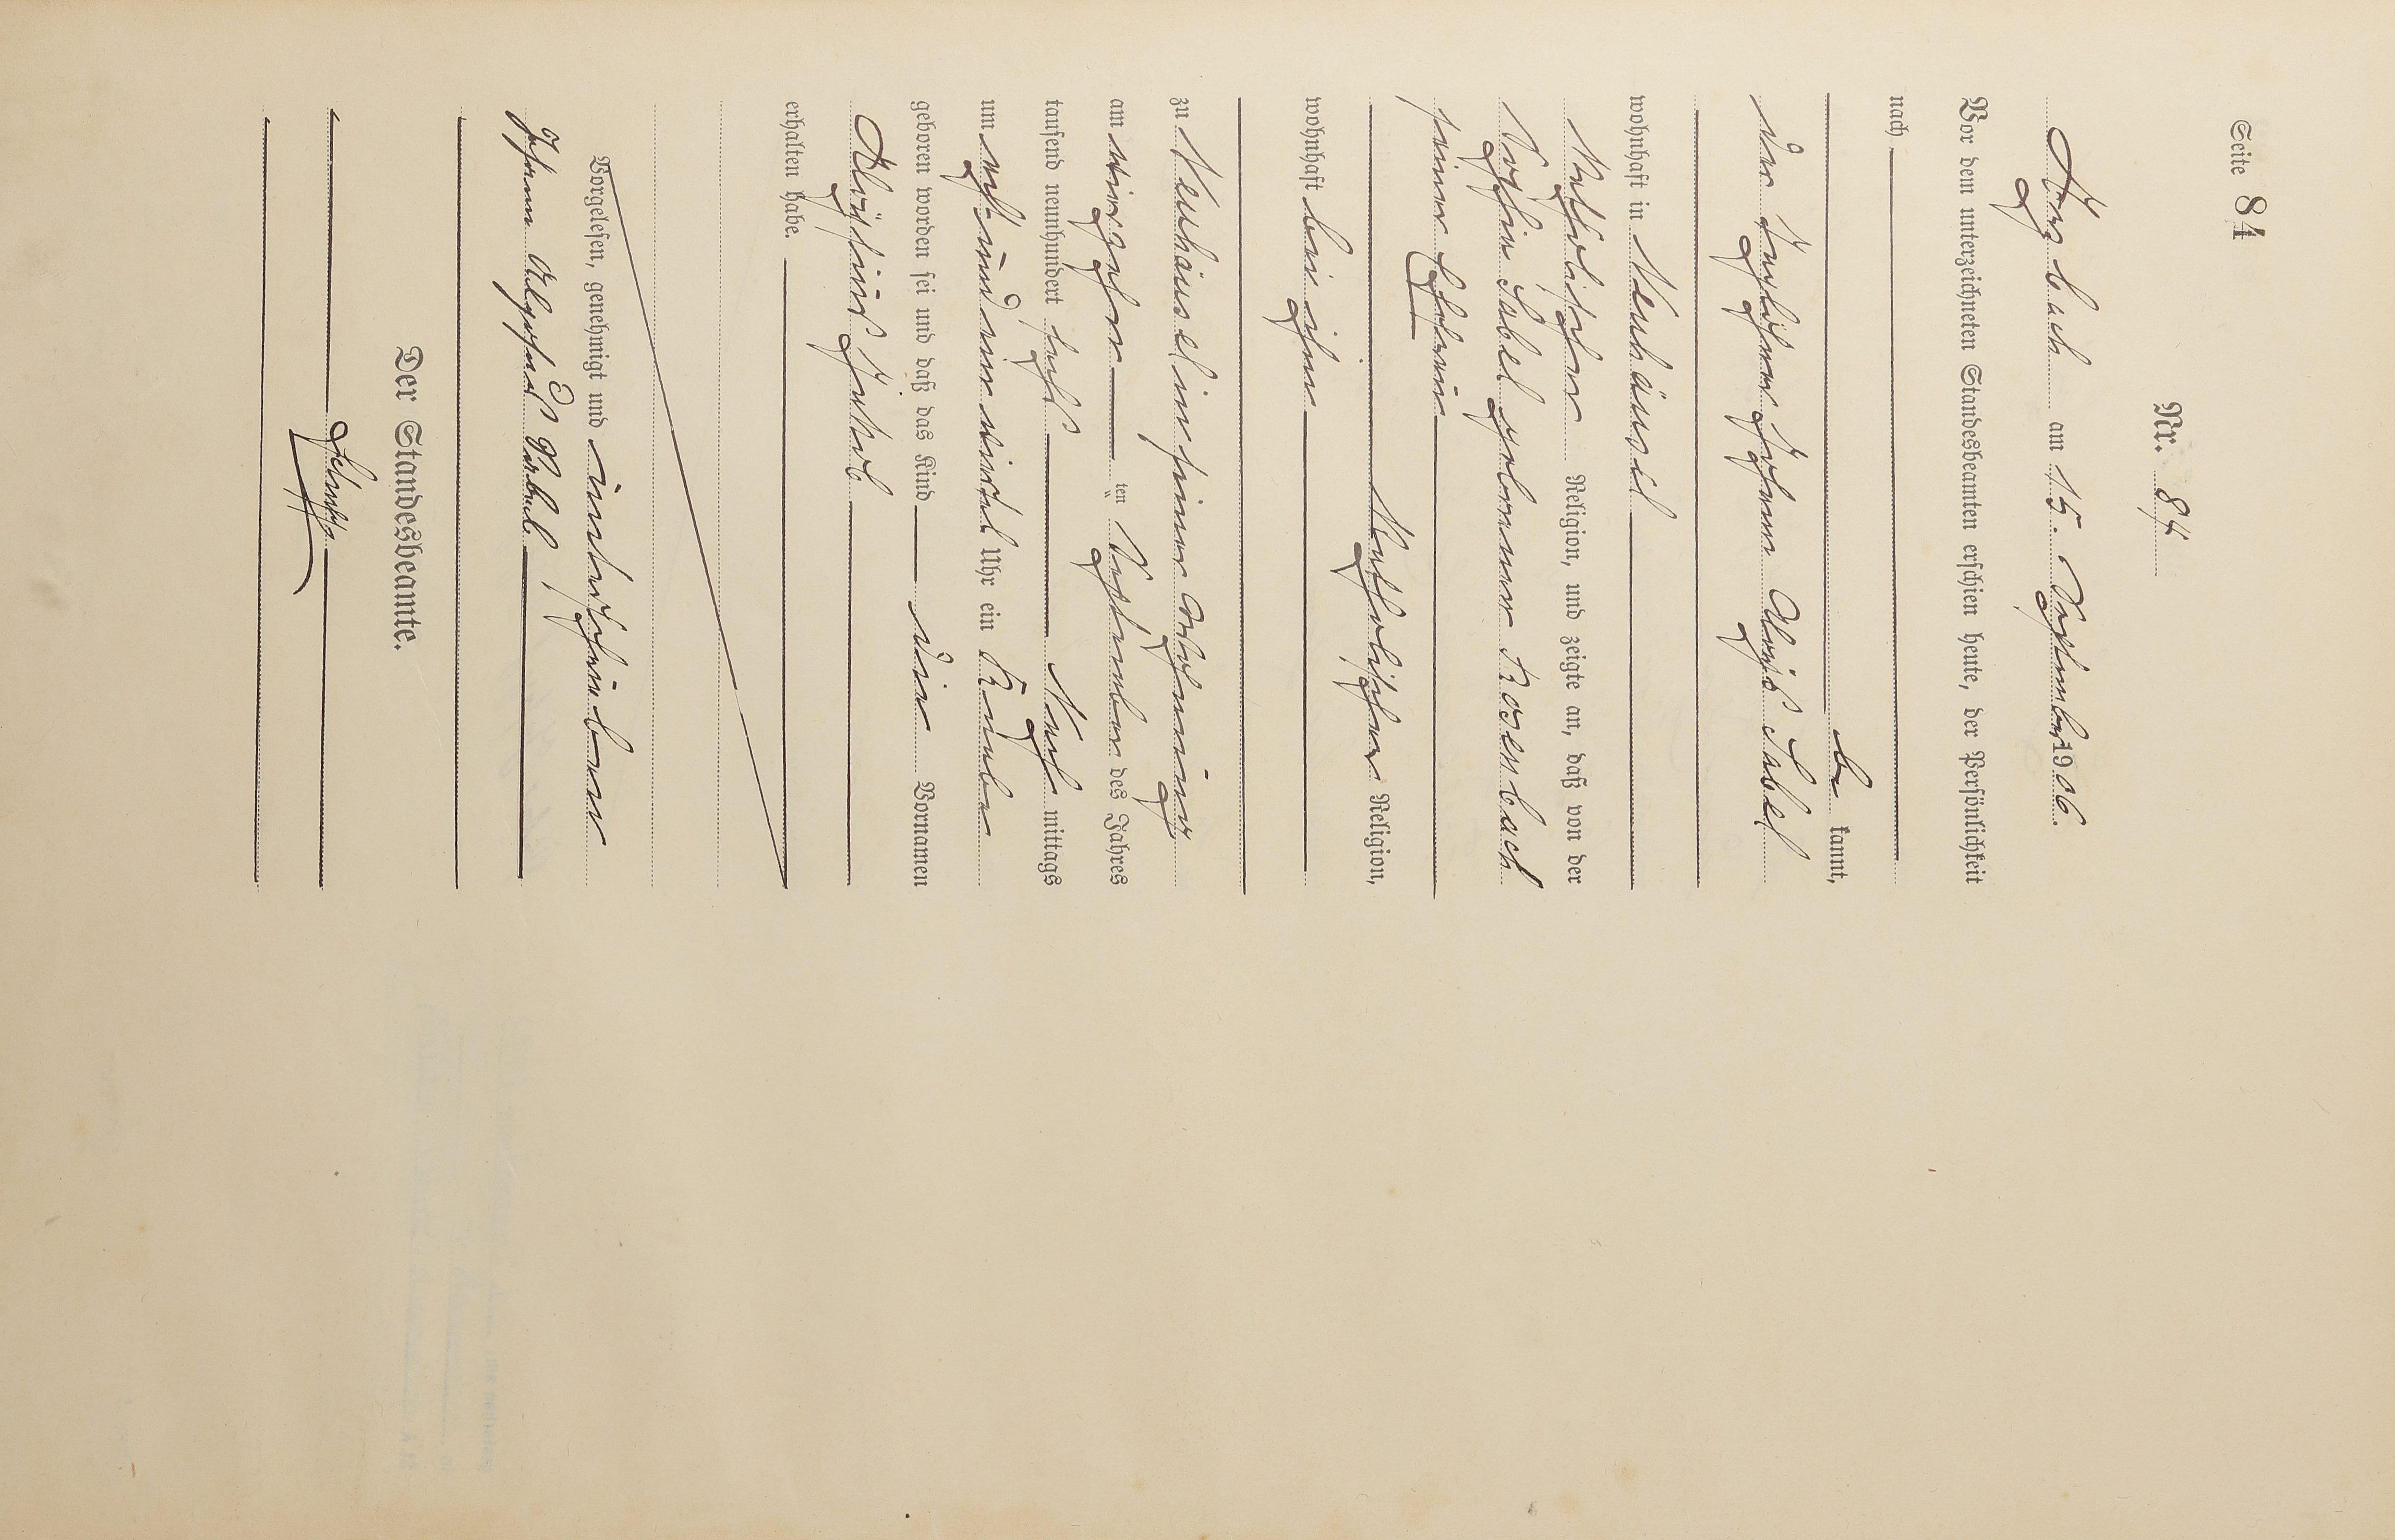 Seite 84
Nr. 84
Arzbach am 15. September 1906.
Vor dem unterzeichneten Standesbeamten erschien heute, der Persönlichkeit
nach
be kannt,
der Taglöhner Johann Aloys Sabel
wohnhaft in Neuhäusel
Katholischer Religion, und zeigte an, daß von der
Sophia Sabel geborenen Rosenbach
seiner Ehefrau
Katholischer Religion,
wohnhaft bei ihm
zu Neuhäusel in seiner Wohnung
am vierzehn ten September des Jahres
tausend neunhundert sechs Nach mittags
um acht und ein viertel Uhr ein Knabe
geboren worden sei und daß das Kind die Vornamen
Aloysius Jakob
erhalten habe.
Vorgelesen, genehmigt und unterschrieben
Johann Sabel
Der Standesbeamte.